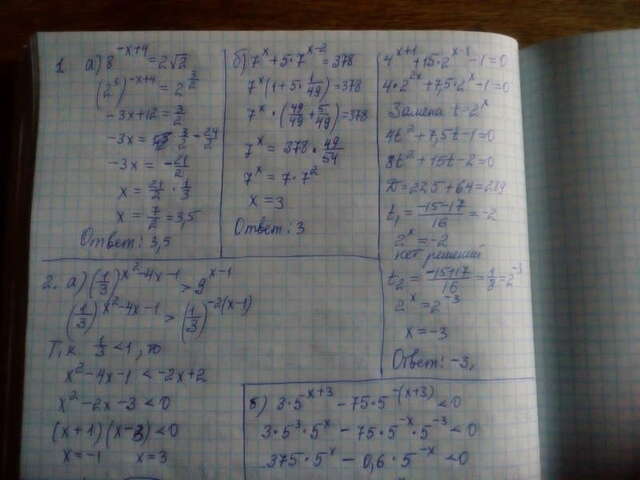 1. а) 8^(-x+4) = 2√2
(2³)^(-x+4) = 2^(3/2)
-3x+12 = 3/2
-3x = 3/2 - 24/2
-3x = -21/2
x = 21/2 · 1/3
x = 7/2 = 3,5
Ответ: 3,5
б) 7^x + 5·7^(x-2) = 378
7^x (1+5·1/49) = 378
7^x · (49/49 + 5/49) = 378
7^x = 378 · 49/54
7^x = 7·7²
x = 3
Ответ: 3
4^(x+1) + 15·2^(x-1) - 1 = 0
4·2^(2x) + 7,5·2^x - 1 = 0
Замена t = 2^x
4t² + 7,5t - 1 = 0
8t² + 15t - 2 = 0
D = 225 + 64 = 289
t₁ = (-15-17)/16 = -2
2^x = -2
нет решений
t₂ = (-15+17)/16 = 1/8 = 2^(-3)
2^x = 2^(-3)
x = -3
Ответ: -3,
2. а) (1/3)^(x²-4x-1) > 9^(x-1)
(1/3)^(x²-4x-1) > (1/3)^(-2(x-1))
Т.к 1/3 < 1, то
x² - 4x - 1 < -2x + 2
x² - 2x - 3 < 0
(x+1)(x-3) < 0
x = -1 x = 3
б) 3·5^(x+3) - 75·5^(-(x+3)) < 0
3·5³·5^x - 75·5^(-x)·5^(-3) < 0
375·5^x - 0,6·5^(-x) < 0